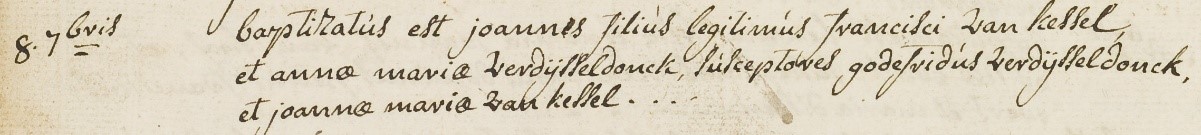 8. 7bris baptizatus est joannes filius legitimus francisci van kessel,
et annæ mariæ verdÿsseldonck, susceptores godefridus verdÿsseldonck,
et joannæ mariæ van kessel . . . .